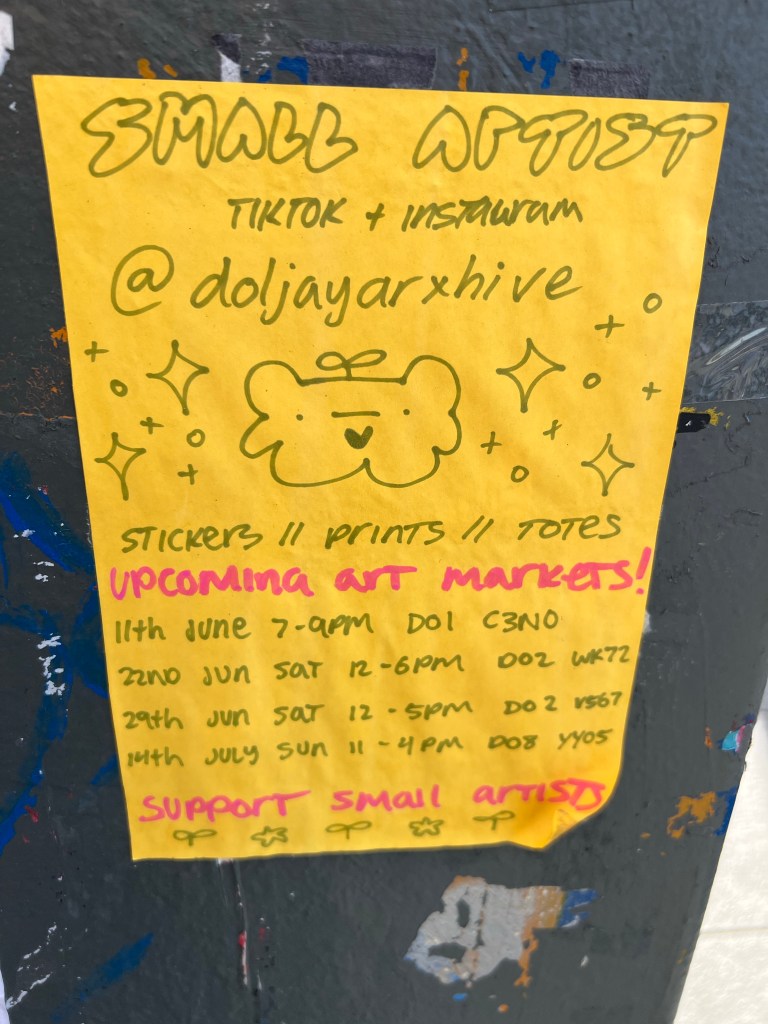 SMALL ARTIST
TIKTOK + INSTAGRAM
@doljayarxhive
STICKERS // PRINTS // TOTES
UPCOMING ART MARKETS!
11th JUNE 7-9PM D01 C3N0
22ND JUN SAT 12-6PM D02 WK72
29th JUN SAT 12-5PM D02 VS67
14th JULY SUN 11-4PM D08 YY05
SUPPORT SMALL ARTISTS